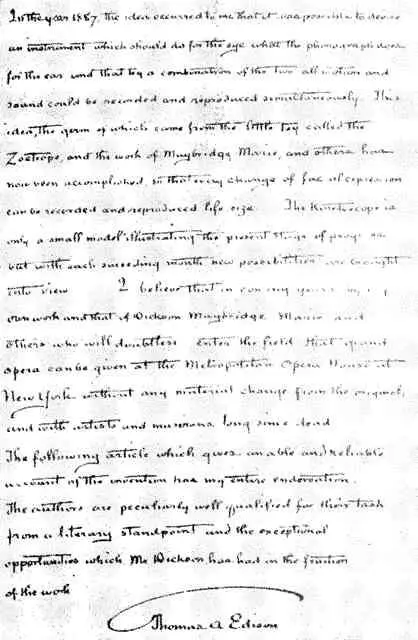 In the year 1887, the idea occurred to me that it was possible to devise
an instrument which should do for the eye what the phonograph does
for the ear and that by a combination of the two all motion and
sound could be recorded and reproduced simultaneously. This
idea, the germ of which came from the little toy called the
Zoetrope, and the work of Muybridge, Marie, and others has
now been accomplished, so that every change of facial expression
can be recorded and reproduced life size. The Kinetoscope is
only a small model illustrating the present stage of progress
but with each succeeding month new possibilities are brought
into view I believe that in coming years by my
own work and that of Dickson Muybridge Marie and
others who will doubtless enter the field that grand
opera can be given at the Metropolitan Opera House at
New York without any material change from the original,
and with artists and musicians long since dead
The following article which gives an able and reliable
account of the invention has my entire endorsation.
The authors are peculiarly well qualified for their task
from a literary standpoint and the exceptional
opportunities which Mr Dickson has had in the fruition
of the work
Thomas A Edison